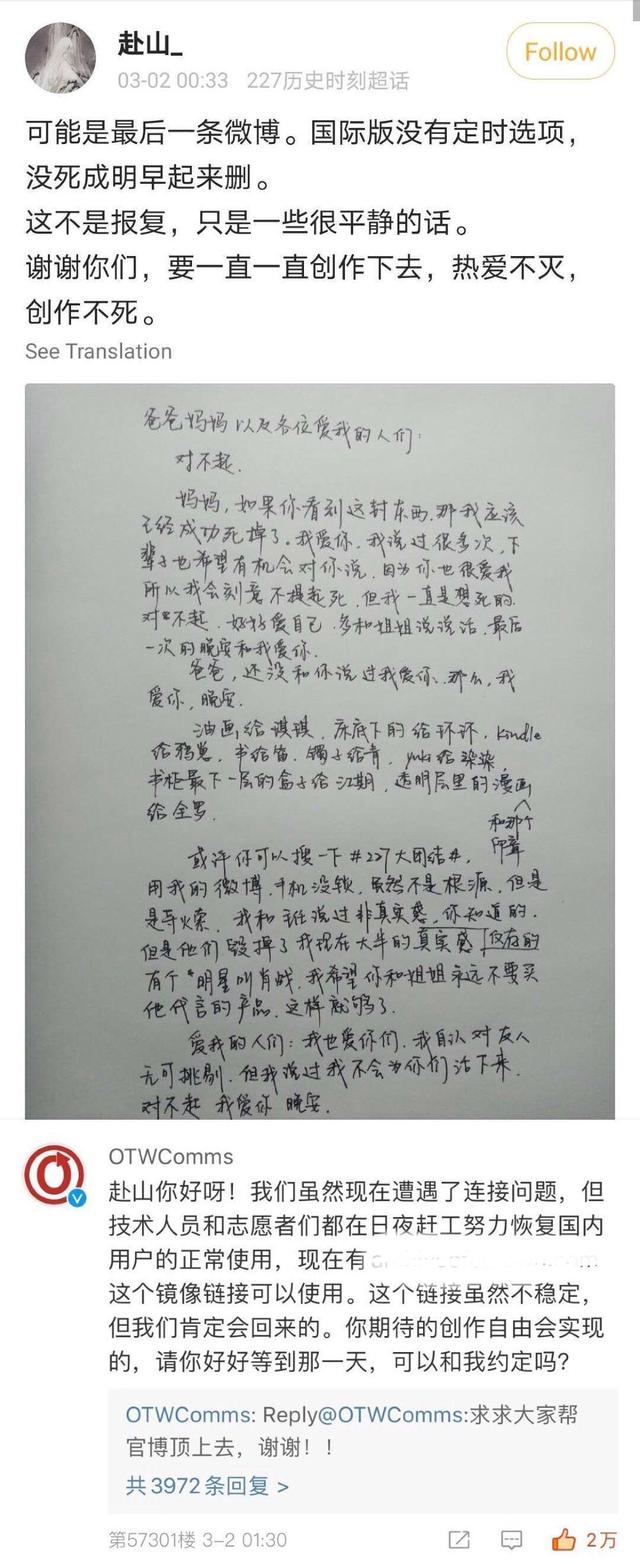 赴山_
Follow
03-02 00:33 227历史时刻超话
可能是最后一条微博。国际版没有定时选项，
没死成明早起来删。
这不是报复，只是一些很平静的话。
谢谢你们，要一直一直创作下去，热爱不灭，
创作不死。
See Translation
爸爸妈妈以及各位爱我的人们：
对不起.
妈妈，如果你看到这封东西.那我应该
已经成功死掉了。我爱你.我说过很多次，下
辈子也希望有机会对你说.因为你也很爱我
所以我会刻意不提起死，但我一直是想死的.
对不起.好好爱自己.多和姐姐说说话.最后
一次的晚安和我爱你.
爸爸，还没和你说过我爱你.那么，我
爱你，晚安.
油画给琪琪，床底下的给环环，kindle
给鸦崽，书给笛.镯子给青，yuki给染染，
书柜最下一层的盒子给江期，透明层里的漫画
和那个
印章
给全罗.
或许你可以搜一下#227大团结#，
用我的微博，手机没锁，虽然不是根源，但是
是导火索.我和 说过非真实感，你知道的.
但是他们毁掉了我现在大半的真实感 仅有的
有个“明星叫肖战，我希望你和姐姐永远不要买
他代言的产品，这样就够了.
爱我的人们：我也爱你们.我自认对友人
无可挑剔.但我说过我不会为你们活下来.
对不起 我爱你 晚安.
OTWComms
赴山你好呀！我们虽然现在遭遇了连接问题，但
技术人员和志愿者们都在日夜赶工努力恢复国内
用户的正常使用，现在有
这个镜像链接可以使用。这个链接虽然不稳定，
但我们肯定会回来的。你期待的创作自由会实现
的，请你好好等到那一天，可以和我约定吗?
OTWComms: Reply@OTWComms:求求大家帮
官博顶上去，谢谢！！
共3972条回复 >
第57301楼 3-2 01:30
2万